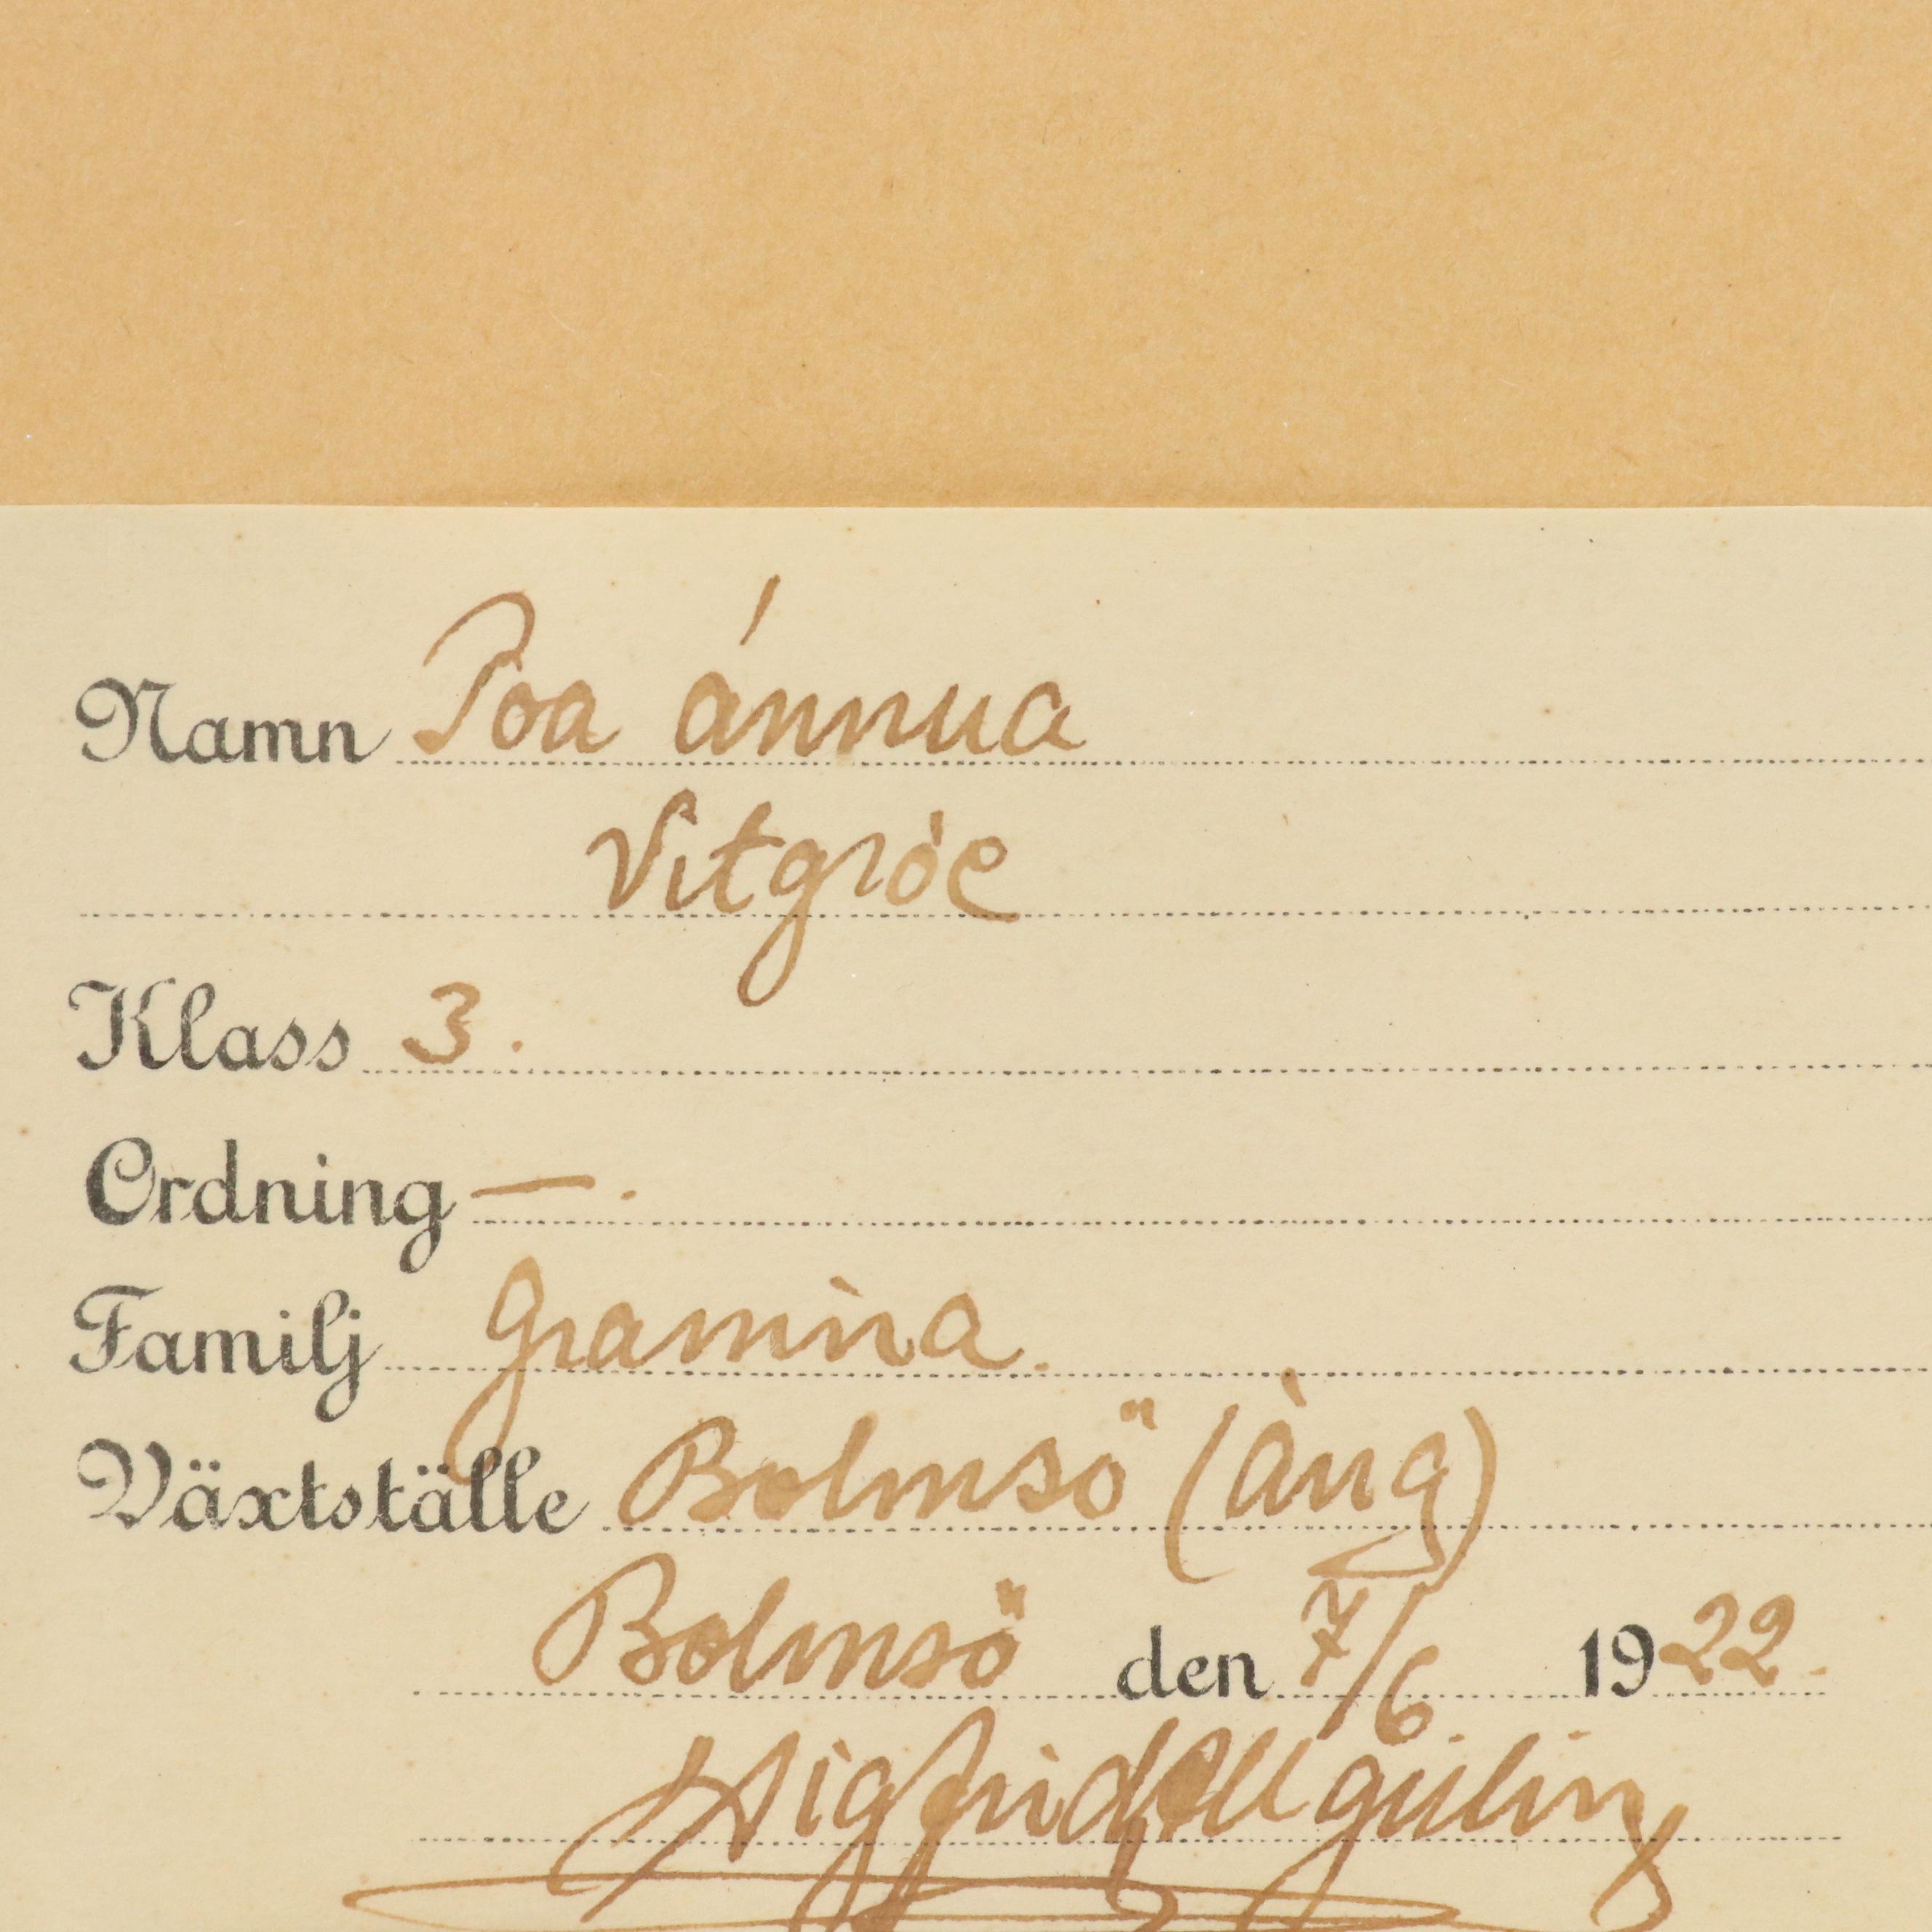 Namn Poa ánnua
Vitgröe
Klass 3.
Ordning —.
Familj Gramina.
Växtställe Bolmsö (Äng)
Bolmsö den 7/6 1922.
Sigfrid